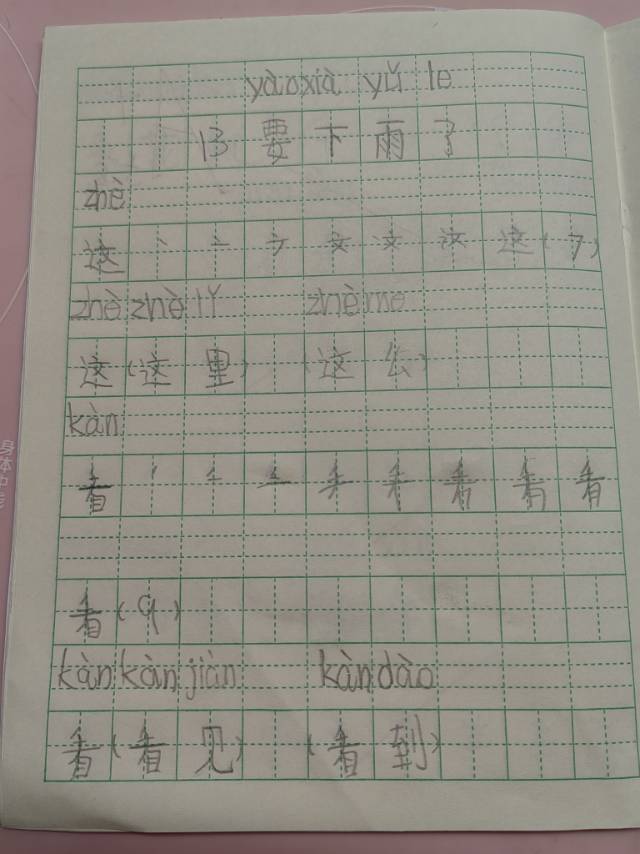 yàoxià yǔ le
13 要下雨了
zhè
这 丶 亠 ナ 文 文 这 这(7)
zhè zhè lǐ zhè me
这(这里) (这么)
kàn
看
看(9)
kàn kàn jiàn kàn dào
看(看见) (看到)